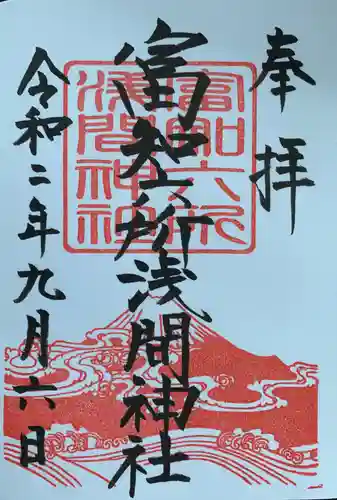 奉拝
富知六所浅間神社
令和二年九月六日
富知六所
浅間神社